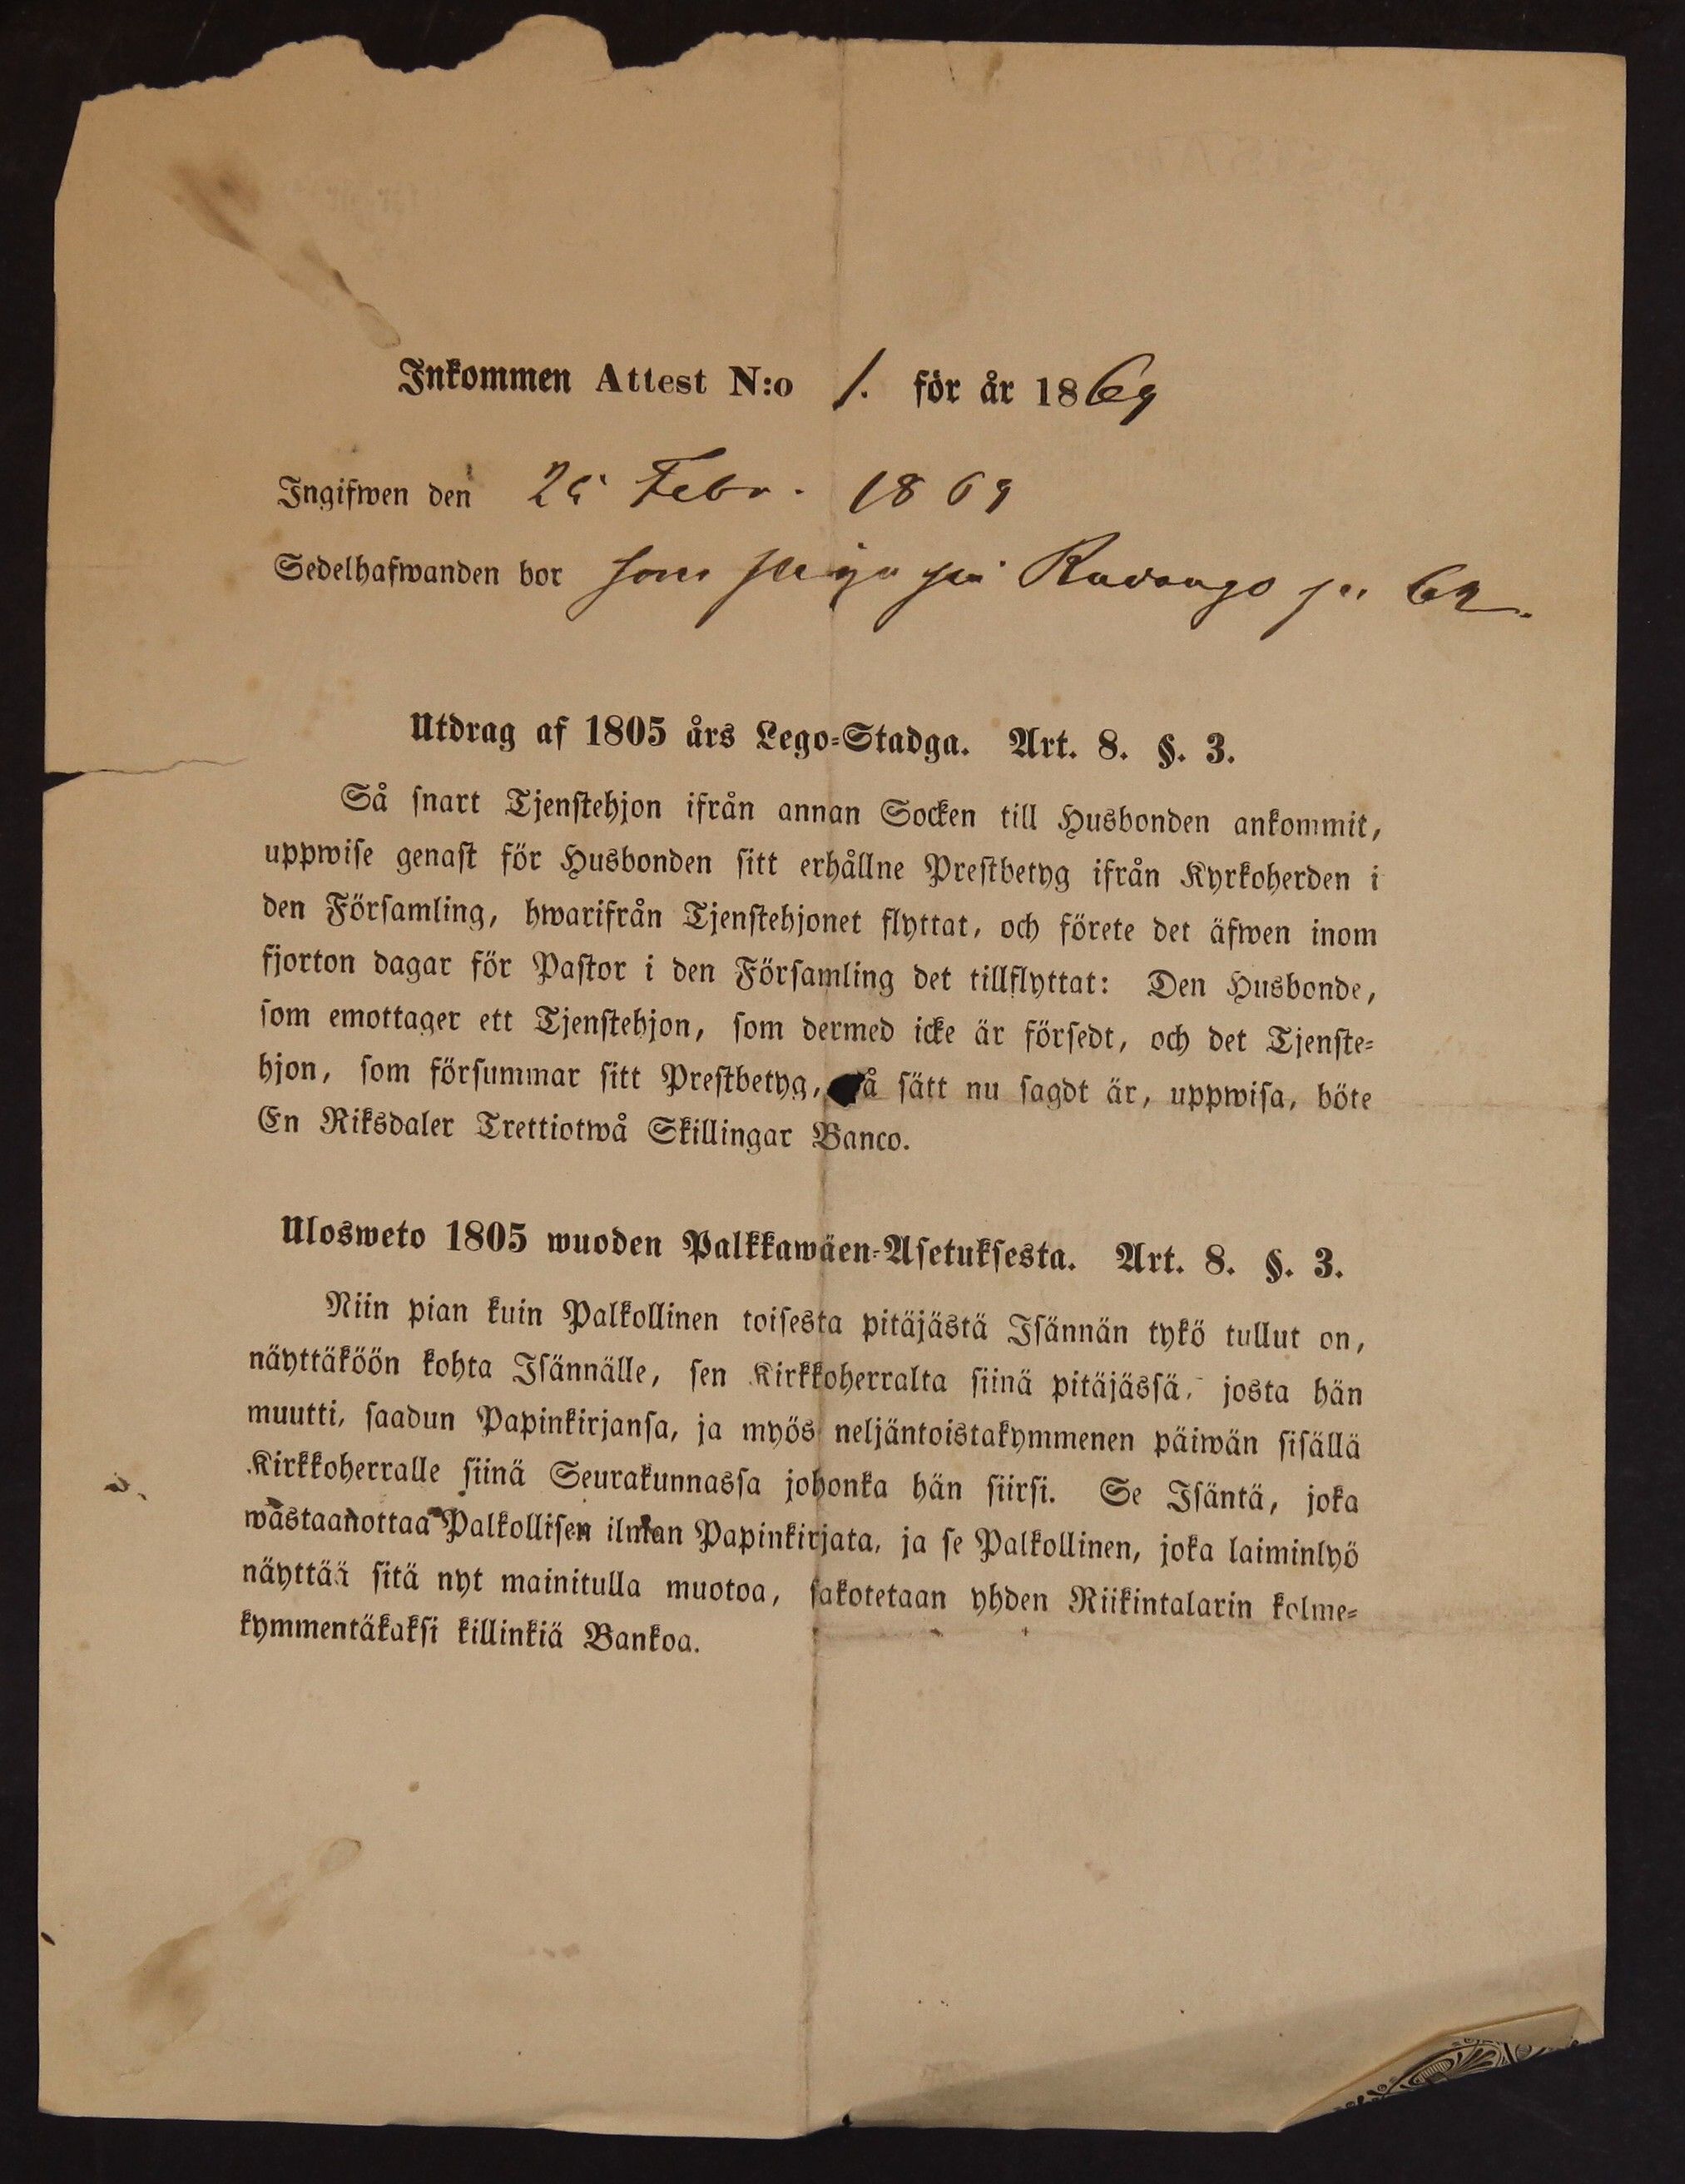 Inkommen Attest N:o 1. för år 1869
Ingifwen den 25 Febr. 1869
Sedelhafwanden bor som piga på
Utdrag af 1805 års Lego-Stadga. Art. 8. §. 3.
Så snart Tjenstehjon ifrån annan Socken till Husbonden ankommit,
uppwise genast för Husbonden sitt erhållne Prestbetyg ifrån Kyrkoherden i
den Församling, hwarifrån Tjenstehjonet flyttat, och förete det äfwen inom
fjorton dagar för Pastor i den Församling det tillflyttat: Den Husbonde,
som emottager ett Tjenstehjon, som dermed icke är försedt, och det Tjenste-
hjon, som försummar sitt Prestbetyg, på sätt nu sagdt är, uppwisa, böte
En Riksdaler Trettiotwå Skillingar Banco.
Ulosweto 1805 wuoden Palkkawäen-Asetuksesta. Art. 8. §. 3.
Niin pian kuin Palkollinen toisesta pitäjästä Isännän tykö tullut on,
näyttäköön kohta Isännälle, sen Kirkkoherralta siinä pitäjässä, josta hän
muutti, saadun Papinkirjansa, ja myös neljäntoistakymmenen päiwän sisällä
Kirkkoherralle siinä Seurakunnassa johonka hän siirsi. Se Isäntä, joka
wastaanottaa Palkollisen ilman Papinkirjata, ja se Palkollinen, joka laiminlyö
näyttää sitä nyt mainitulla muotoa, sakotetaan yhden Riikintalarin kolme-
kymmentäkaksi killinkiä Bankoa.